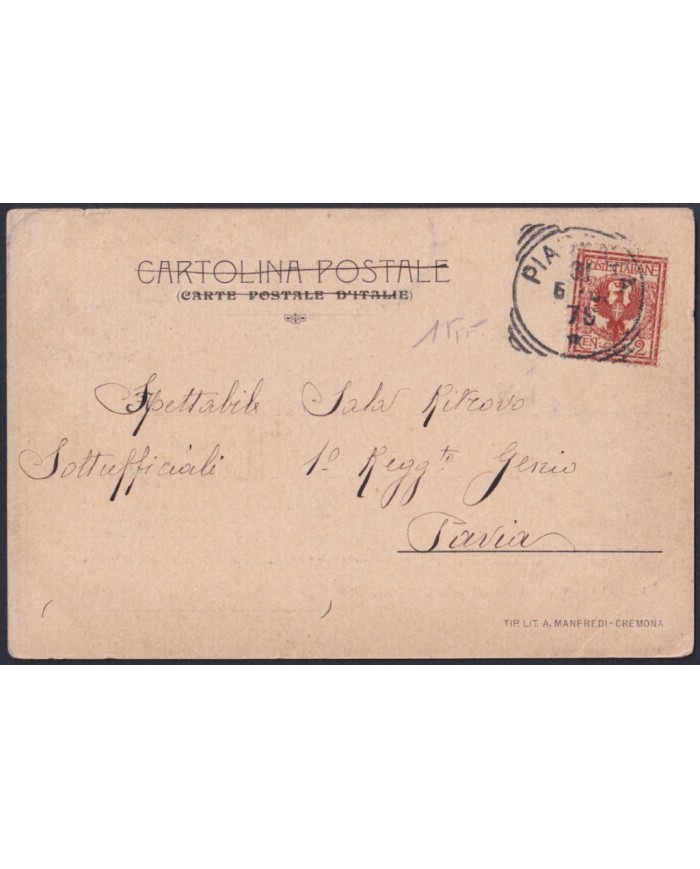 CARTOLINA POSTALE
(CARTE POSTALE D'ITALIE)
PIA
POSTE ITALIANE
2
Spettabile Sala Ritrovo
Sottufficiali 1º Reggto Genio
Pavia
( )
TIP. LIT. A. MANFREDI-CREMONA